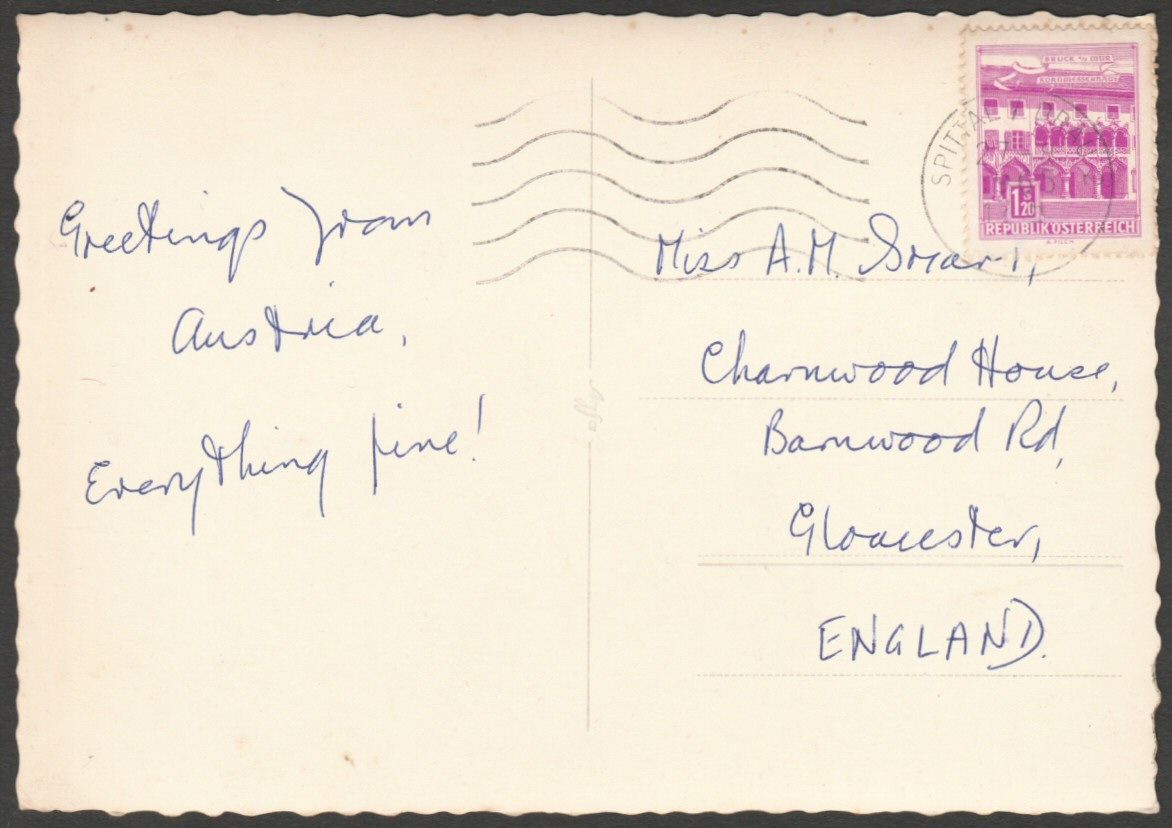 Greetings from
Austria,
Everything fine!
BRUCK a/d MUR
KORNMESSERHAUS
1 S 20
REPUBLIK ÖSTERREICH
SPITTAL
Miss A.M. Smart,
Charnwood House,
Barnwood Rd,
Gloucester,
ENGLAND.